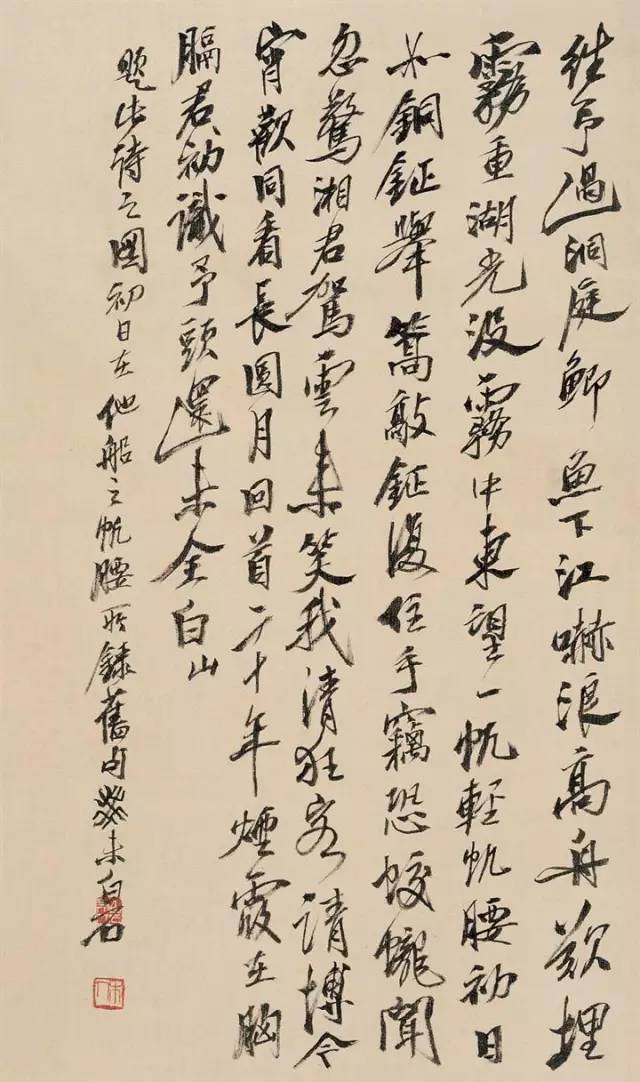 往予過洞庭鯽魚下江嚇浪高舟欲埋
霧重湖光没霧中東望一帆輕帆腰初日
如銅鉦舉篙敲鉦復住手竊恐蛟龍聞
忽驚湘君駕雲來笑我清狂客請博今
宵歡同看長圓月回首二十年煙霞在胸
膈君初識予頭還未全白山
題出詩之圖初日在他船之帆腰所錄舊句癸未白石